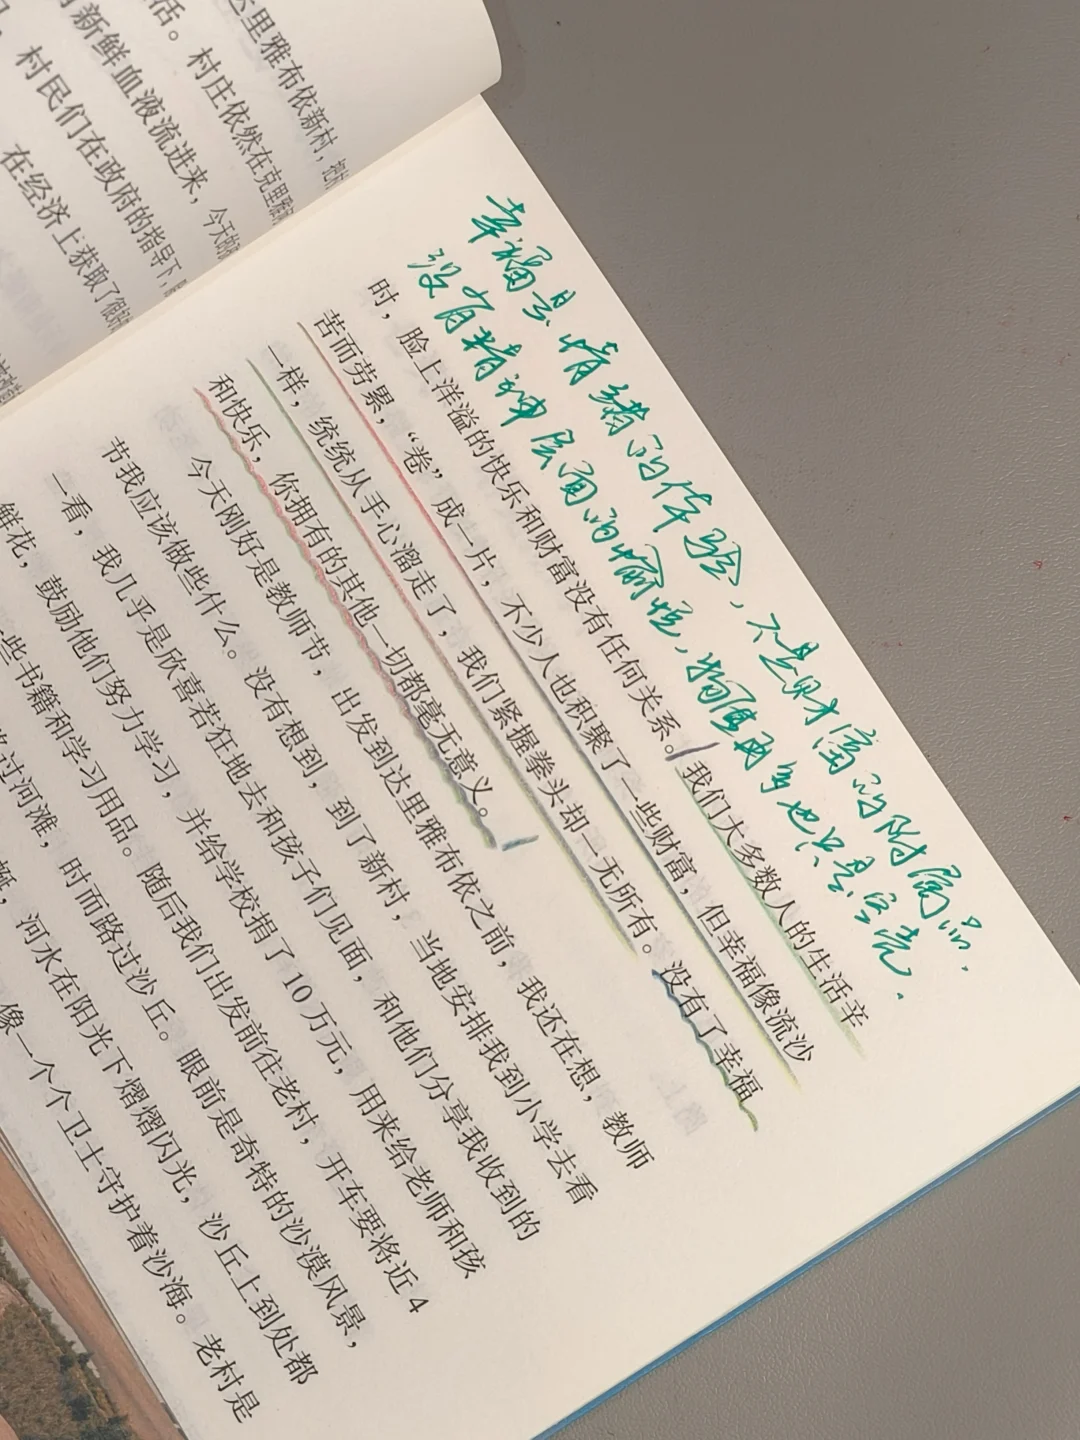 达里雅布依新村，把
活。村庄依然在克里雅
新鲜血液流进来，今天的
村民们在政府的指导下，
在经济上获取了很
幸福是情绪的体验，不是财富的附属品.
没有精神层面的愉悦，物质再多也只是空壳.
时，脸上洋溢的快乐和财富没有任何关系。我们大多数人的生活辛
苦而劳累，“卷”成一片，不少人也积聚了一些财富，但幸福像流沙
一样，统统从手心溜走了，我们紧握拳头却一无所有。没有了幸福
和快乐，你拥有的其他一切都毫无意义。
今天刚好是教师节，出发到达里雅布依之前，我还在想，教师
节我应该做些什么。没有想到，到了新村，当地安排我到小学去看
一看，我几乎是欣喜若狂地去和孩子们见面，和他们分享我收到的
鲜花，鼓励他们努力学习，并给学校捐了10万元，用来给老师和孩
些书籍和学习用品。随后我们出发前往老村，开车要将近4
过河滩，时而路过沙丘。眼前是奇特的沙漠风景，
蜒，河水在阳光下熠熠闪光，沙丘上到处都
像一个个卫士守护着沙海。老村是